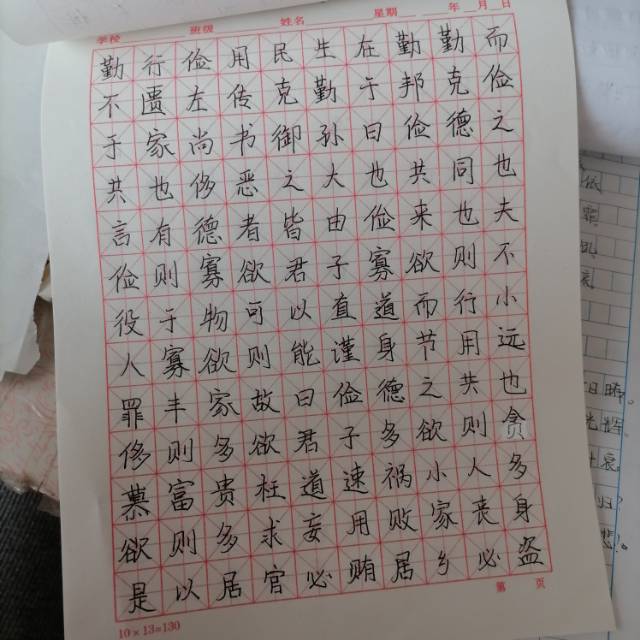 学校 班级 姓名 星期 年 月 日
勤行俭用民生在勤勤而
不匮左传克勤于邦克俭
于家尚书御孙曰俭德之
共也侈恶之大也共同也
言有德者皆由俭来也夫
俭则寡欲君子寡欲则不
役于物可以直道而行小
人寡欲则能谨身节用远
罪丰家故曰俭德之共也
侈则多欲君子多欲则贪
慕富贵枉道速祸小人多
欲则多求妄用败家丧身
是以居官必贿居乡必盗
第 页
10×13=130